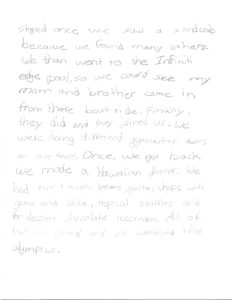 stoped once we saw a sandcrab
because we found many others.
We than went to the Infiniti
edge pool, so we could see my
mom and brother come in
from there boat ride. Finally,
they did and they joined us. We
were doing different gymnastics turns
Once, we got back
we made a Hawaiian dinner. We
had rice + beans, pasta, chips with
guac and salsa, tropical skittles and
for dessert chocolate icecream. All of
that and we watched the
olympics.